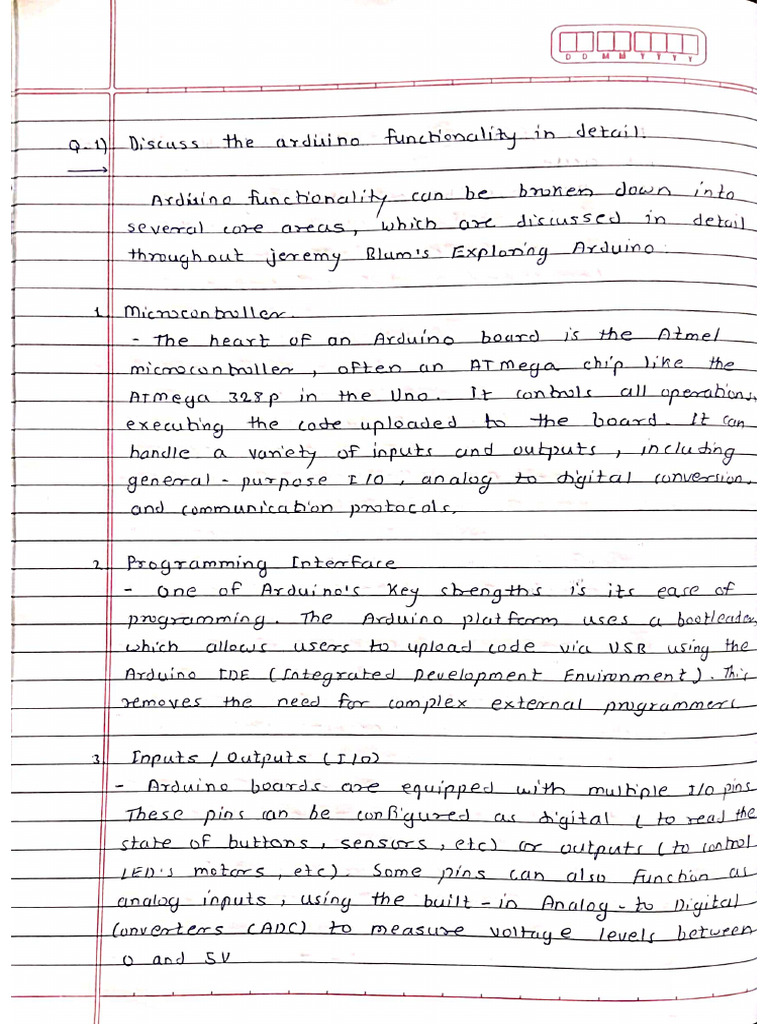 D D M M Y Y Y Y
Q-1) Discuss the arduino functionality in detail.
Arduino functionality can be broken down into
several core areas, which are discussed in detail
throughout jeremy Blum's Exploring Arduino.
1. Microcontroller.
- The heart of an Arduino board is the Atmel
microcontroller, often an ATmega chip like the
ATmega 328p in the Uno. It controls all operations,
executing the code uploaded to the board. It can
handle a variety of inputs and outputs, including
general-purpose I/O, analog to digital conversion,
and communication protocols.
2. Programming Interface
- One of Arduino's Key strengths is its ease of
programming. The Arduino platform uses a bootloader,
which allows users to upload code via USB using the
Arduino IDE (Integrated Development Environment). This
removes the need for complex external programmers
3. Inputs / Outputs (I/O)
- Arduino boards are equipped with multiple I/o pins
These pins can be configured as digital ( to read the
state of buttons, sensors, etc) or outputs ( to control
LED's motors, etc). Some pins can also function as
analog inputs, using the built-in Analog-to Digital
Converters (ADC) to measure voltage levels between
0 and 5V